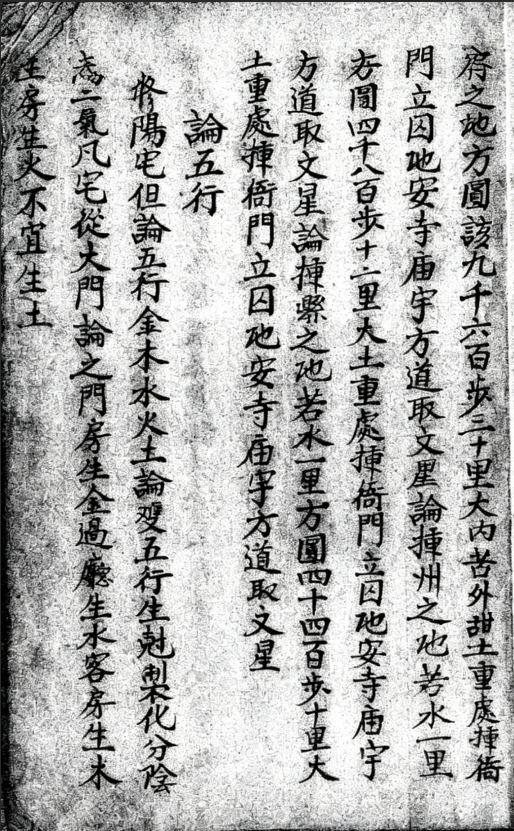 府之地方圓該九千六百步三十里大內苦外甜土重處揷衙
門立囚地安寺庙宇方道取文星論揷州之地若水一里
方圓四千八百步十二里大土重處揷衙門立囚地安寺庙宇
方道取文星論揷縣之地若水一里方圓四十四百步十里大
土重處揷衙門立囚地安寺庙宇方道取文星
論五行
修陽宅但論五行金木水火土論双五行生尅製化分陰
為二氣凡宅從大門論之門房生金過廳生水客房生木
主房生火不宜生土